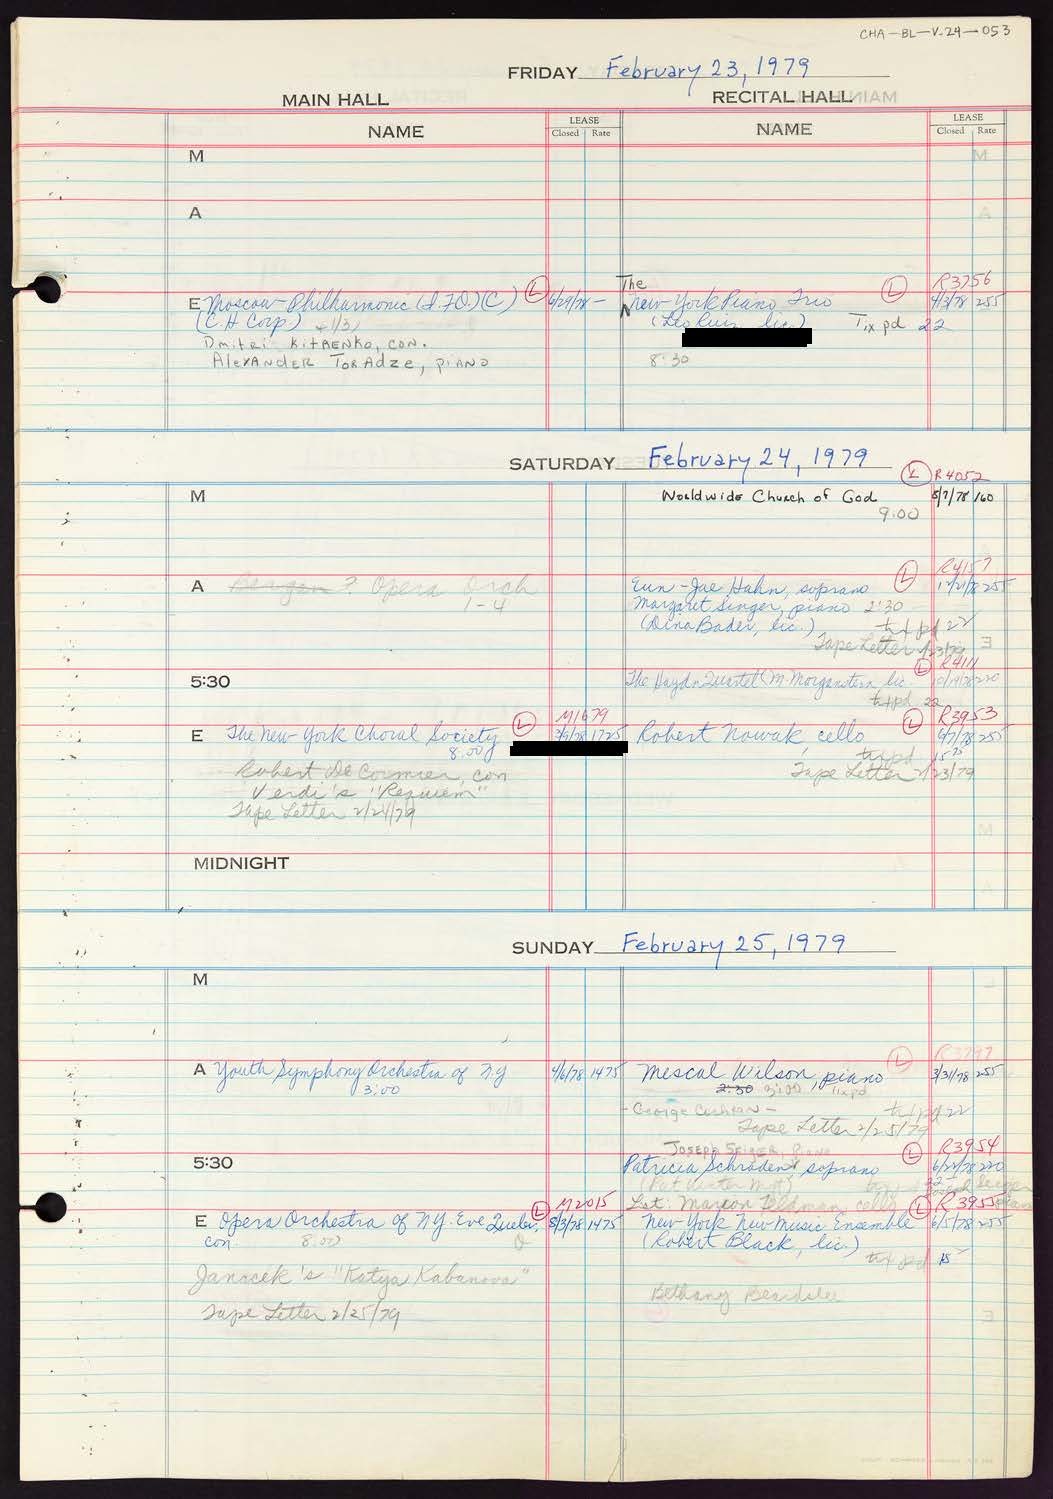 CHA-BL-V-24-053
FRIDAY February 23, 1979
MAIN HALL RECITAL HALL
NAME LEASE Closed Rate NAME LEASE Closed Rate
M
A
E Moscow Philharmonic (I.F.O.) (C) L 6/29/78 -
(C.H Corp) +1/3)
Dmitri Kitaenko, con.
Alexander Toradze, piano
R3756
The
New York Piano Trio L 4/3/78 255
(Leo Ruiz lic.) Tix pd 22
8:30
SATURDAY February 24, 1979
M
L R4052
Worldwide Church of God 8/7/78 160
9:00
A Bergen ? Opera Orch
1-4
R4157
Eun-Jae Hahn, soprano L 12/21/78 255
Margaret Singer, piano 2:30
(Dina Bader, lic.) tix pd 22
Tape Letter 1/23/79
5:30
L R4111
The Haydn Quartet (M. Morganstern lic. 10/19/78 220
tix pd 22
E The New York Choral Society L M1679
8:00 3/9/78 1725
Robert De Cormier, con
Verdi's "Requiem"
Tape Letter 2/24/79
Robert Nowak, cello L R3953
6/7/78 255
tix pd 15 75
Tape Letter 2/23/79
MIDNIGHT
SUNDAY February 25, 1979
M
A Youth Symphony Orchestra of N.Y 4/6/78 1475
3:00
L R3797
Mescal Wilson, piano 3/31/78 255
2:30 3:00 tix pd
- George Cochran - tix pd 22
Tape Letter 2/25/79
5:30
Joseph Seiger, piano
Patricia Schraden, soprano L R3954
6/22/78 220
E Opera Orchestra of N.Y. Eve Queler, L M2015
con. 8:00 8/3/78 1475
Janacek's "Katya Kabanova"
Tape Letter 2/25/79
Let: Marion Feldman cello L R3955
New York New Music Ensemble 6/5/78 255
(Robert Black, lic.)
tix pd 15
Bethany Beardslee